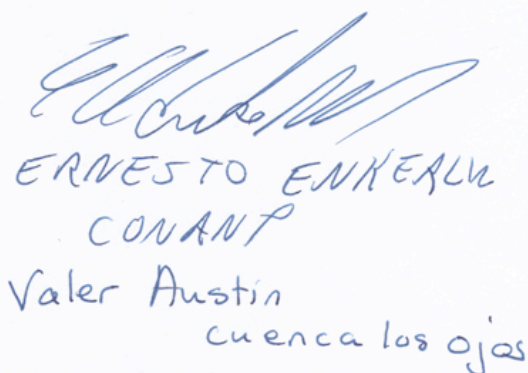 ERNESTO ENKERLIN
CONANP
Valer Austin
cuenca los ojos